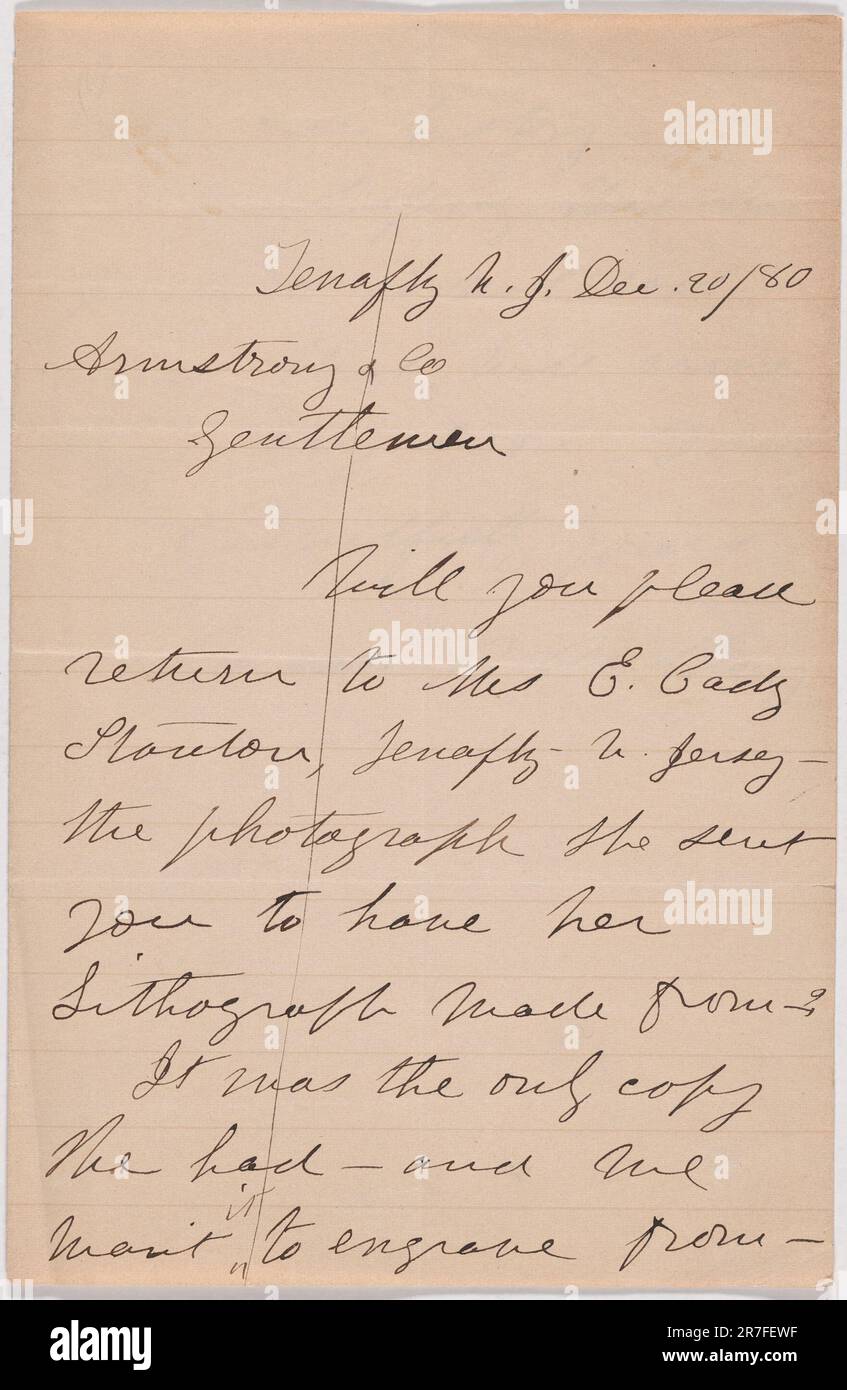 Tenafly N. J. Dec. 20/80
Armstrong & Co
Gentlemen
Will you please
return to Mrs E. Cady
Stanton, Tenafly - N. Jersey -
the photograph she sent
you to have her
Lithograph made from - ?
It was the only copy
she had - and we
want it to engrave from -
alamy
Image ID: 2R7FEWF
www.alamy.com